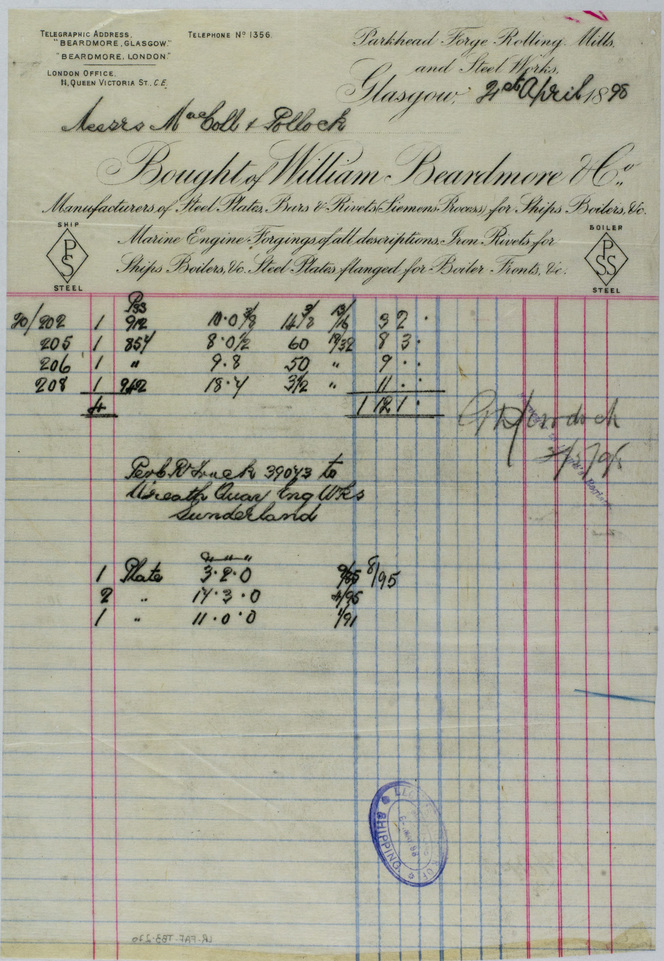 TELEGRAPHIC ADDRESS,
"BEARDMORE, GLASGOW."
"BEARDMORE, LONDON."
LONDON OFFICE.
11, QUEEN VICTORIA ST., E.C.
TELEPHONE Nº 1356.
Parkhead Forge Rolling Mills,
and Steel Works,
Glasgow, April 1898
Messrs MacColl & Pollock
Bought of William Beardmore & Co.,
Manufacturers of Steel Plates, Bars & Rivets (Siemens Process) for Ships Boilers, &c.
SHIP PS STEEL
Marine Engine Forgings of all descriptions, Iron Rivets for
Ships Boilers, &c. Steel Plates flanged for Boiler Fronts, &c.
BOILER PSS STEEL
20/202 1 912 10.0 3/8 13/16 3 2 .
205 1 854 8.0 1/2 60 19/32 8 3 .
206 1 " 9.8 50 " 9 . .
208 1 18.4 " 11 . .
4 1 12 1 .
Truck 39043 to
Wreath Quay Eng Wks
Sunderland
1 Plate 3.2.0 8/95
2 " 17.3.0 4/95
1 " 11.0.0 1/91
SHIPPING
LR-PAF-TB3-270